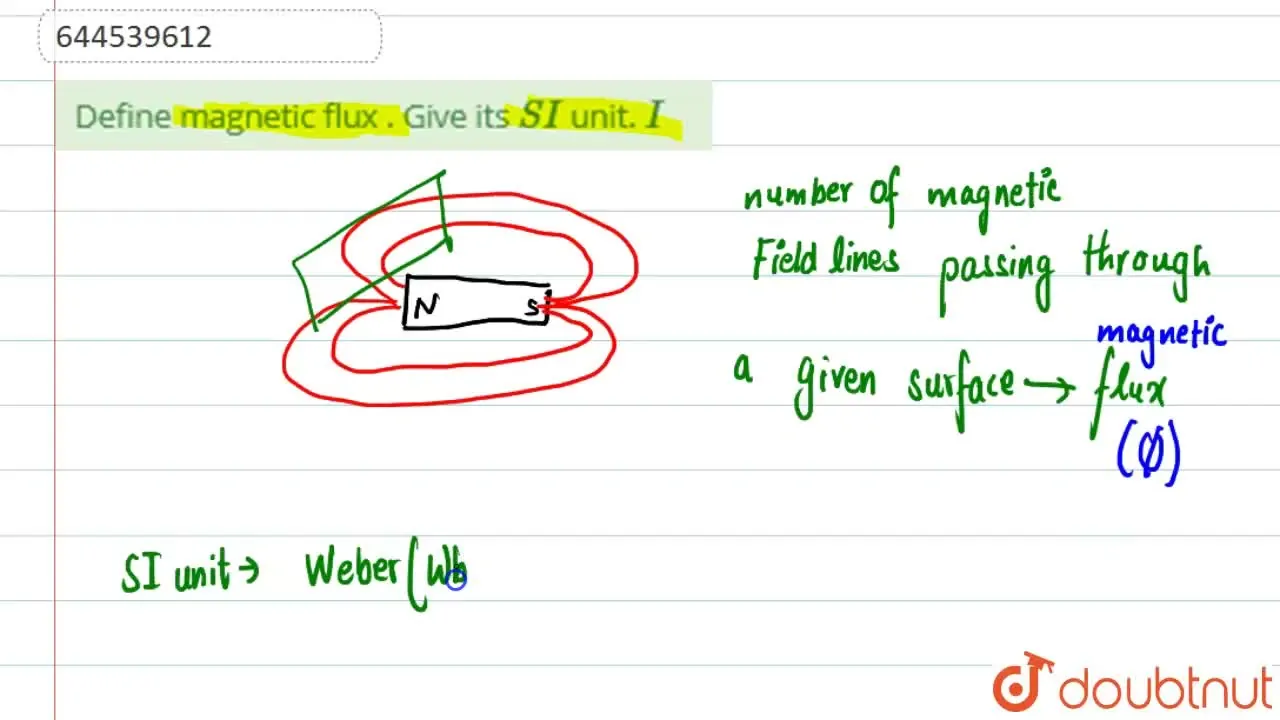 644539612
Define magnetic flux . Give its SI unit. I
N S
number of magnetic
Field lines passing through
magnetic
a given surface → flux
(Ø)
SI unit → Weber (Wb
doubtnut